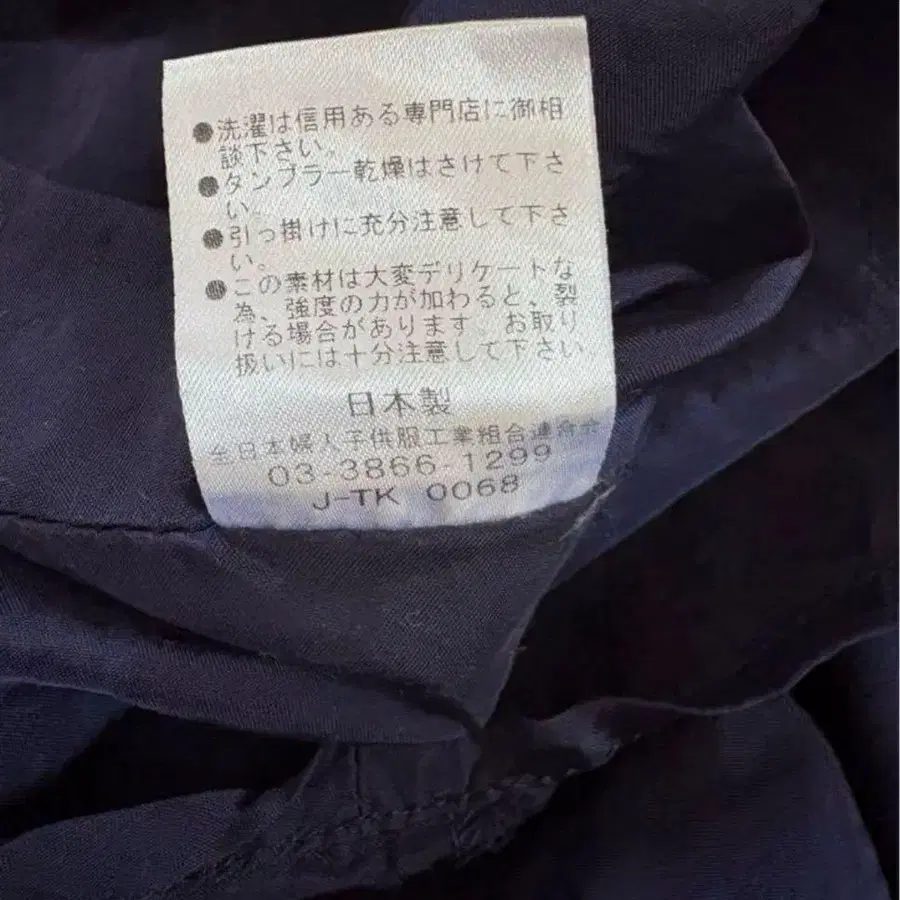 ●洗濯は信用ある専門店に御相
談下さい。
●タンブラー乾燥はさけて下さ
い。
●引っ掛けに充分注意して下さ
い。
●この素材は大変デリケートな
為、強度の力が加わると、裂
ける場合があります。お取り
扱いには十分注意して下さい
日本製
全日本婦人子供服工業組合連合会
03-3866-1299
J-TK 0068